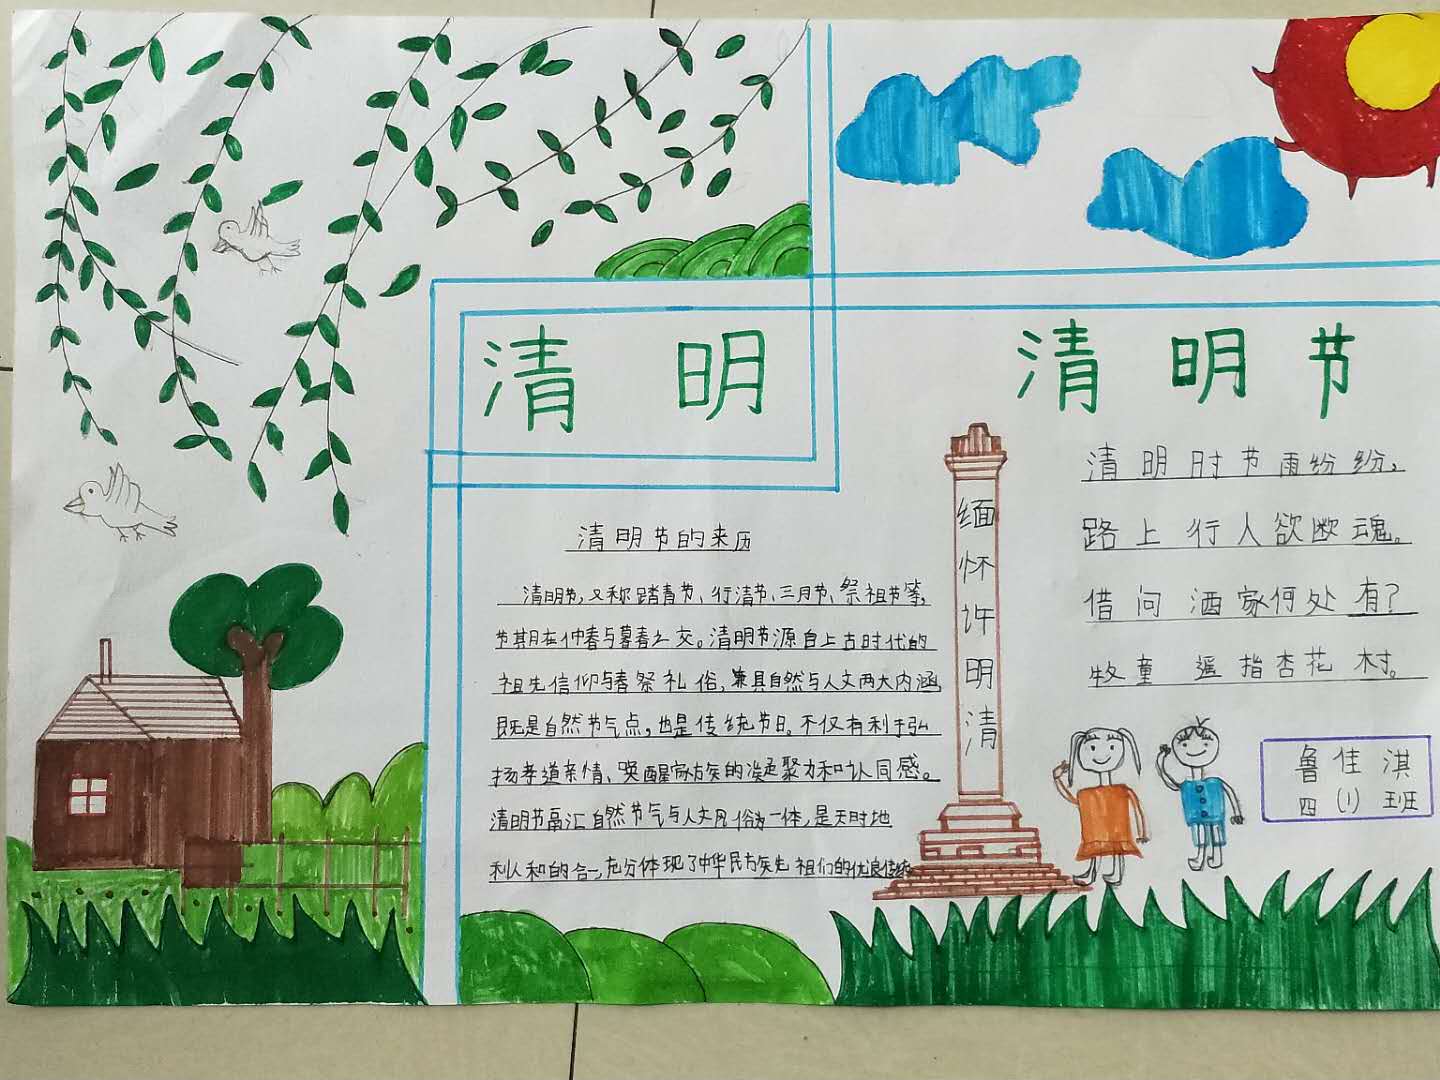 清明
清明节的来历
清明节,又称踏青节、行清节、三月节、祭祖节等,
节期在仲春与暮春之交。清明节源自上古时代的
祖先信仰与春祭礼俗,兼具自然与人文两大内涵
既是自然节气点,也是传统节日。不仅有利于弘
扬孝道亲情、唤醒家族的聚力和认同感。
清明节融汇自然节气与人文风俗为一体,是天时地
利人和的合一,充分体现了中华民族先祖们的优良传统
缅怀许明清
清明节
清明时节雨纷纷,
路上行人欲断魂。
借问酒家何处有?
牧童遥指杏花村。
鲁佳淇
四(1)班